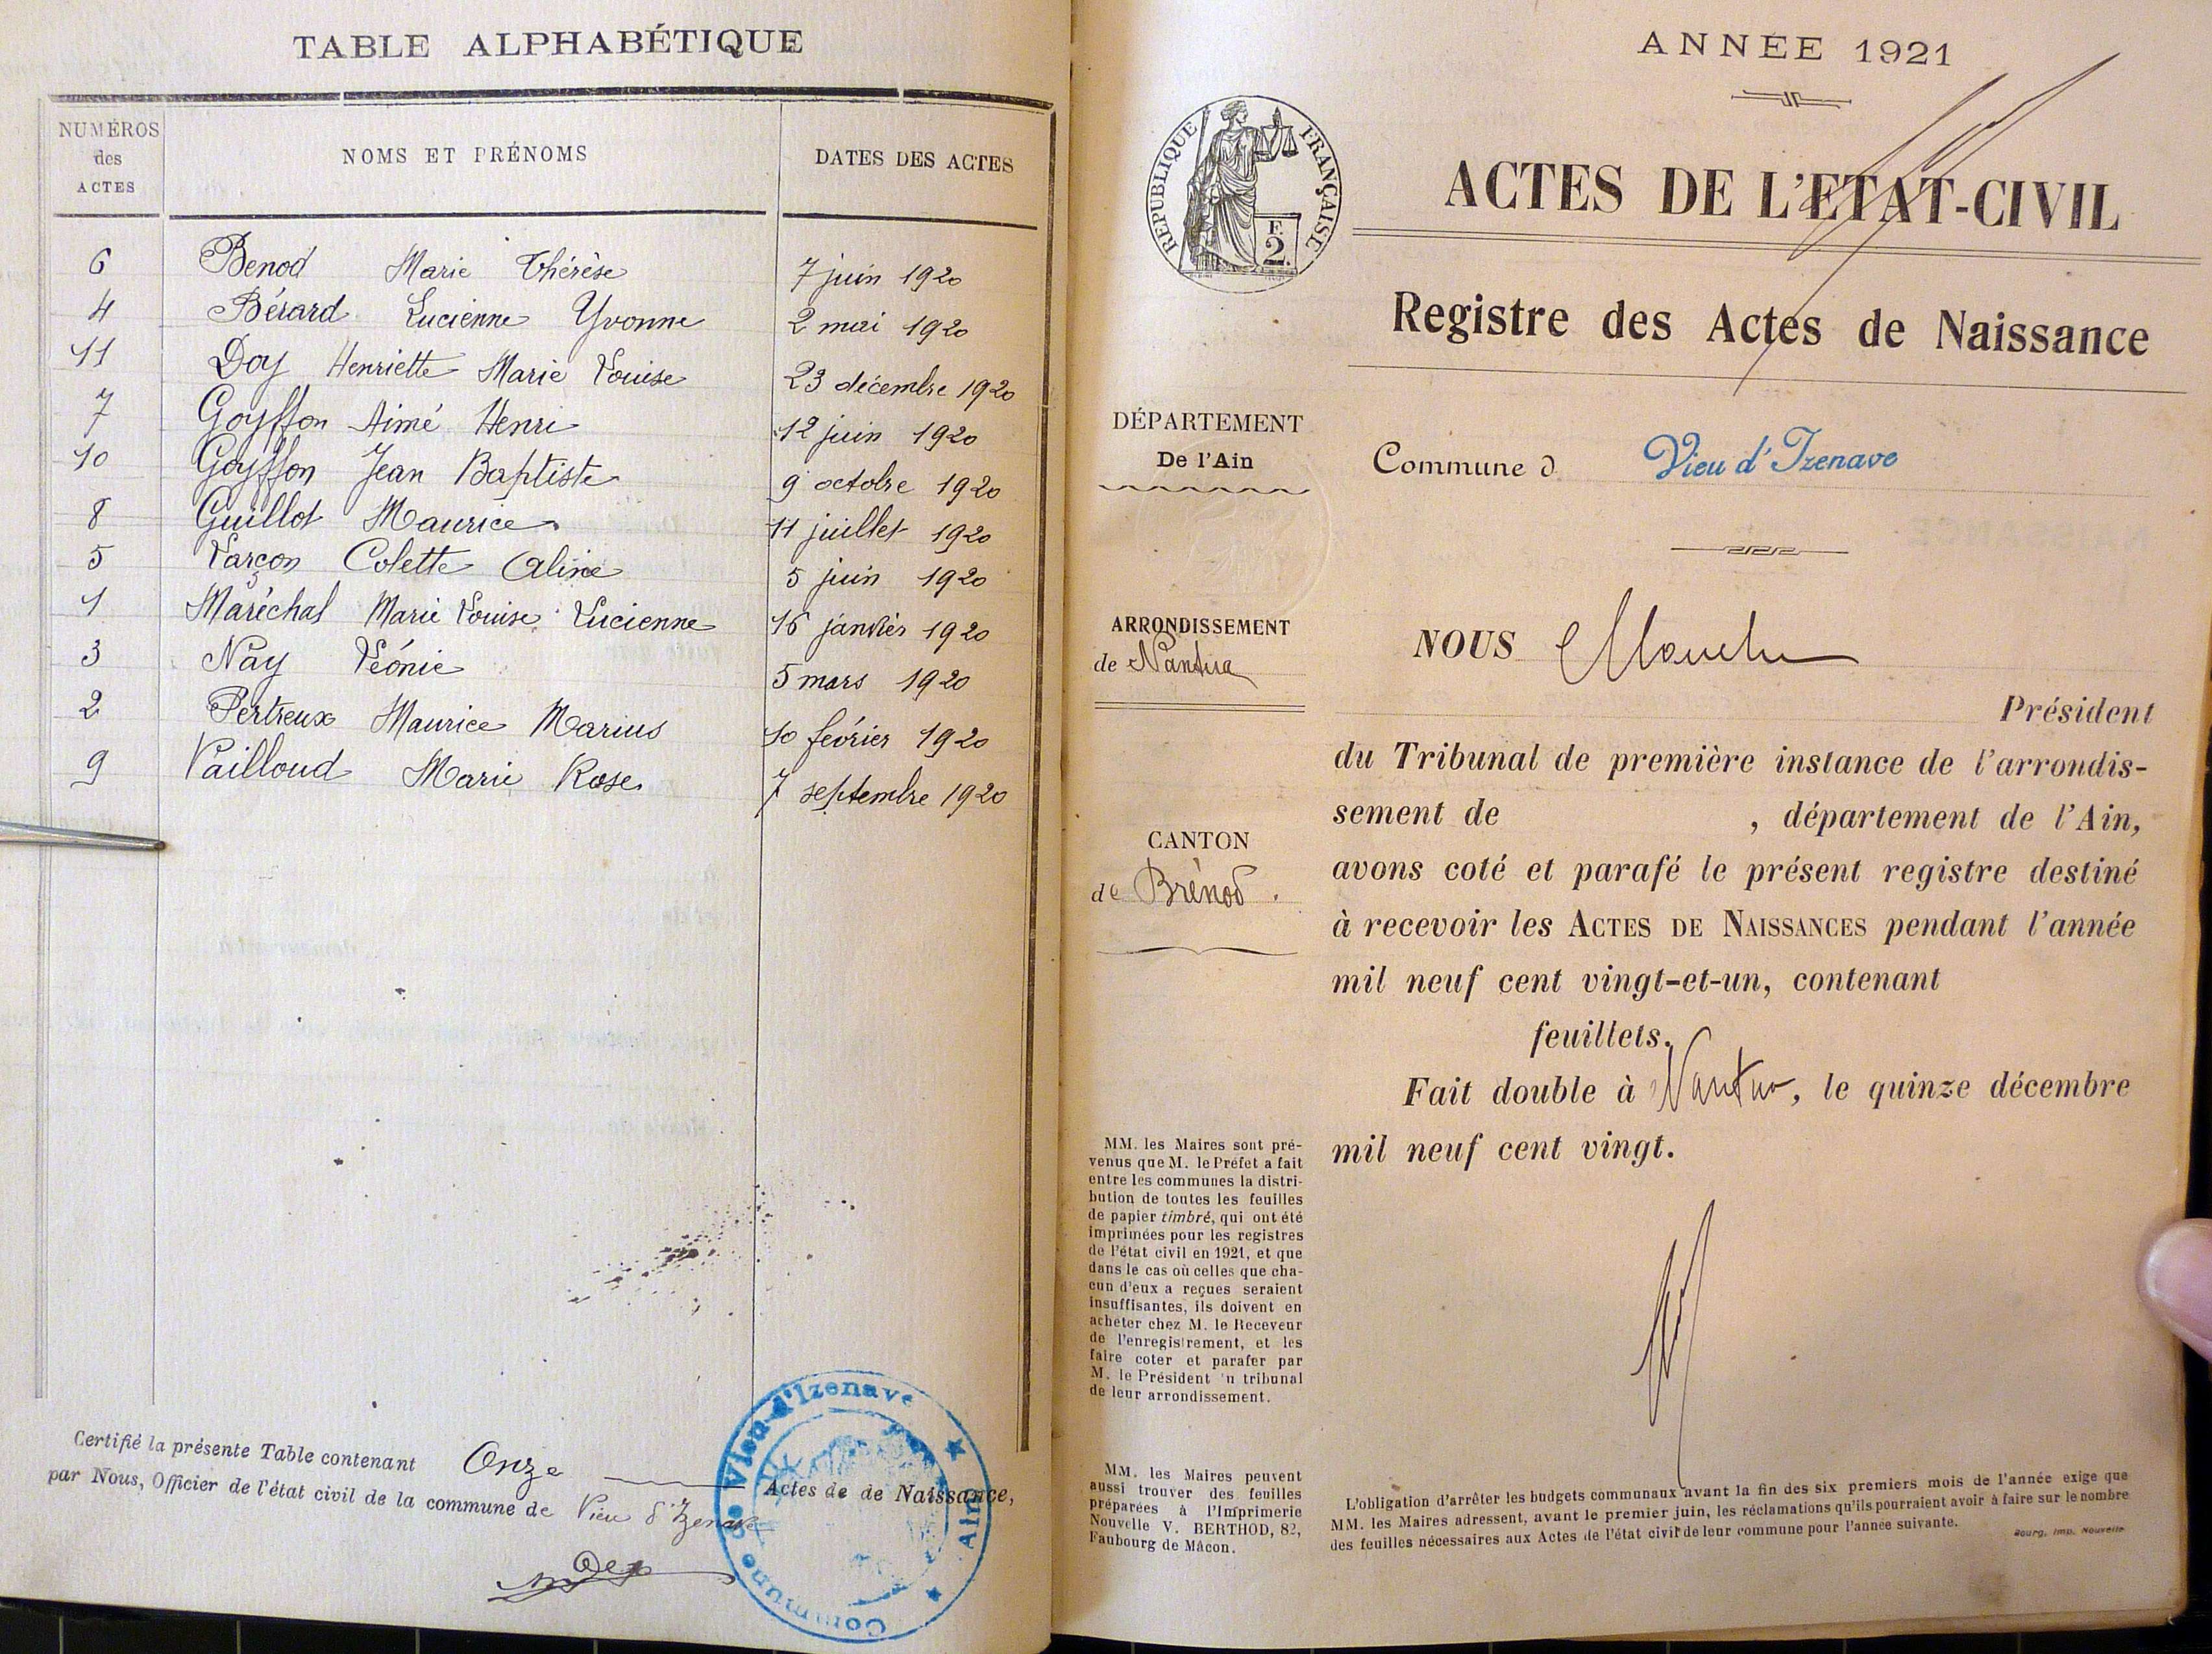 TABLE ALPHABÉTIQUE
NUMÉROS des ACTES
NOMS ET PRÉNOMS
DATES DES ACTES
6 Benod Marie Thérèse 7 juin 1920
4 Bérard Lucienne Yvonne 2 mai 1920
11 Doy Henriette Marie Louise 23 décembre 1920
7 Goyffon Aimé Henri 12 juin 1920
10 Goyffon Jean Baptiste 9 octobre 1920
8 Guillot Maurice 11 juillet 1920
5 Larçon Colette Aline 5 juin 1920
1 Maréchal Marie Louise Lucienne 16 janvier 1920
3 Nay Léonie 5 mars 1920
2 Pertreux Maurice Marius 10 février 1920
9 Vailloud Marie Rose 7 septembre 1920
Certifié la présente Table contenant Onze Actes de de Naissance,
par Nous, Officier de l'état civil de la commune de Vieu d'Izenave
Commune de Vieu-d'Izenave
Ain
ANNÉE 1921
RÉPUBLIQUE FRANÇAISE
F.
2.
ACTES DE L'ETAT-CIVIL
Registre des Actes de Naissance
DÉPARTEMENT
De l'Ain
Commune d Vieu d'Izenave
ARRONDISSEMENT
de Nantua
CANTON
de Brénod.
NOUS
Président
du Tribunal de première instance de l'arrondis-
sement de , département de l'Ain,
avons coté et parafé le présent registre destiné
à recevoir les ACTES DE NAISSANCES pendant l'année
mil neuf cent vingt-et-un, contenant
feuillets.
Fait double à Nantua, le quinze décembre
mil neuf cent vingt.
MM. les Maires sont pré-
venus que M. le Préfet a fait
entre les communes la distri-
bution de toutes les feuilles
de papier timbré, qui ont été
imprimées pour les registres
de l'état civil en 1921, et que
dans le cas où celles que cha-
cun d'eux a reçues seraient
insuffisantes, ils doivent en
acheter chez M. le Receveur
de l'enregistrement, et les
faire coter et parafer par
M. le Président 'u tribunal
de leur arrondissement.
MM. les Maires peuvent
aussi trouver des feuilles
préparées à l'Imprimerie
Nouvelle V. BERTHOD, 82,
Faubourg de Mâcon.
L'obligation d'arrêter les budgets communaux avant la fin des six premiers mois de l'année exige que
MM. les Maires adressent, avant le premier juin, les réclamations qu'ils pourraient avoir à faire sur le nombre
des feuilles nécessaires aux Actes de l'état civil de leur commune pour l'année suivante.
Bourg, Imp. Nouvelle